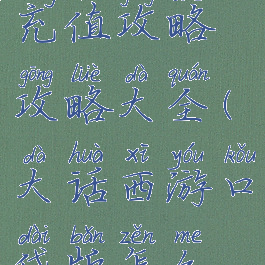 充值攻略
gōng lüè dà quán
攻略大全(
dà huà xī yóu kǒu
大话西游口
dài bǎn zěn me
袋版怎么